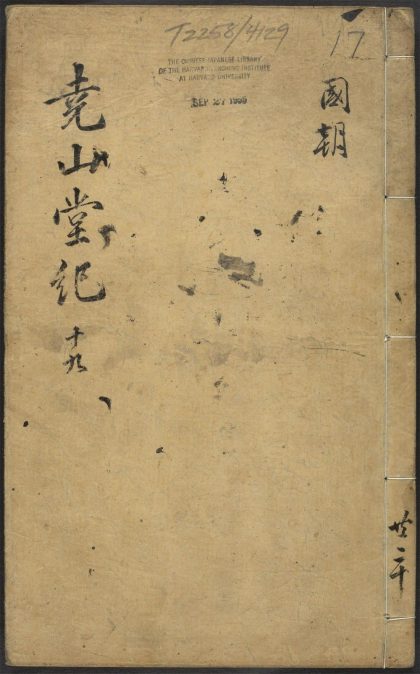 T2258/4129
17
THE CHINESE-JAPANESE LIBRARY
OF THE HARVARD-YENCHING INSTITUTE
AT HARVARD UNIVERSITY
SEP 27
國朝
尭山堂紀
十九
共二十